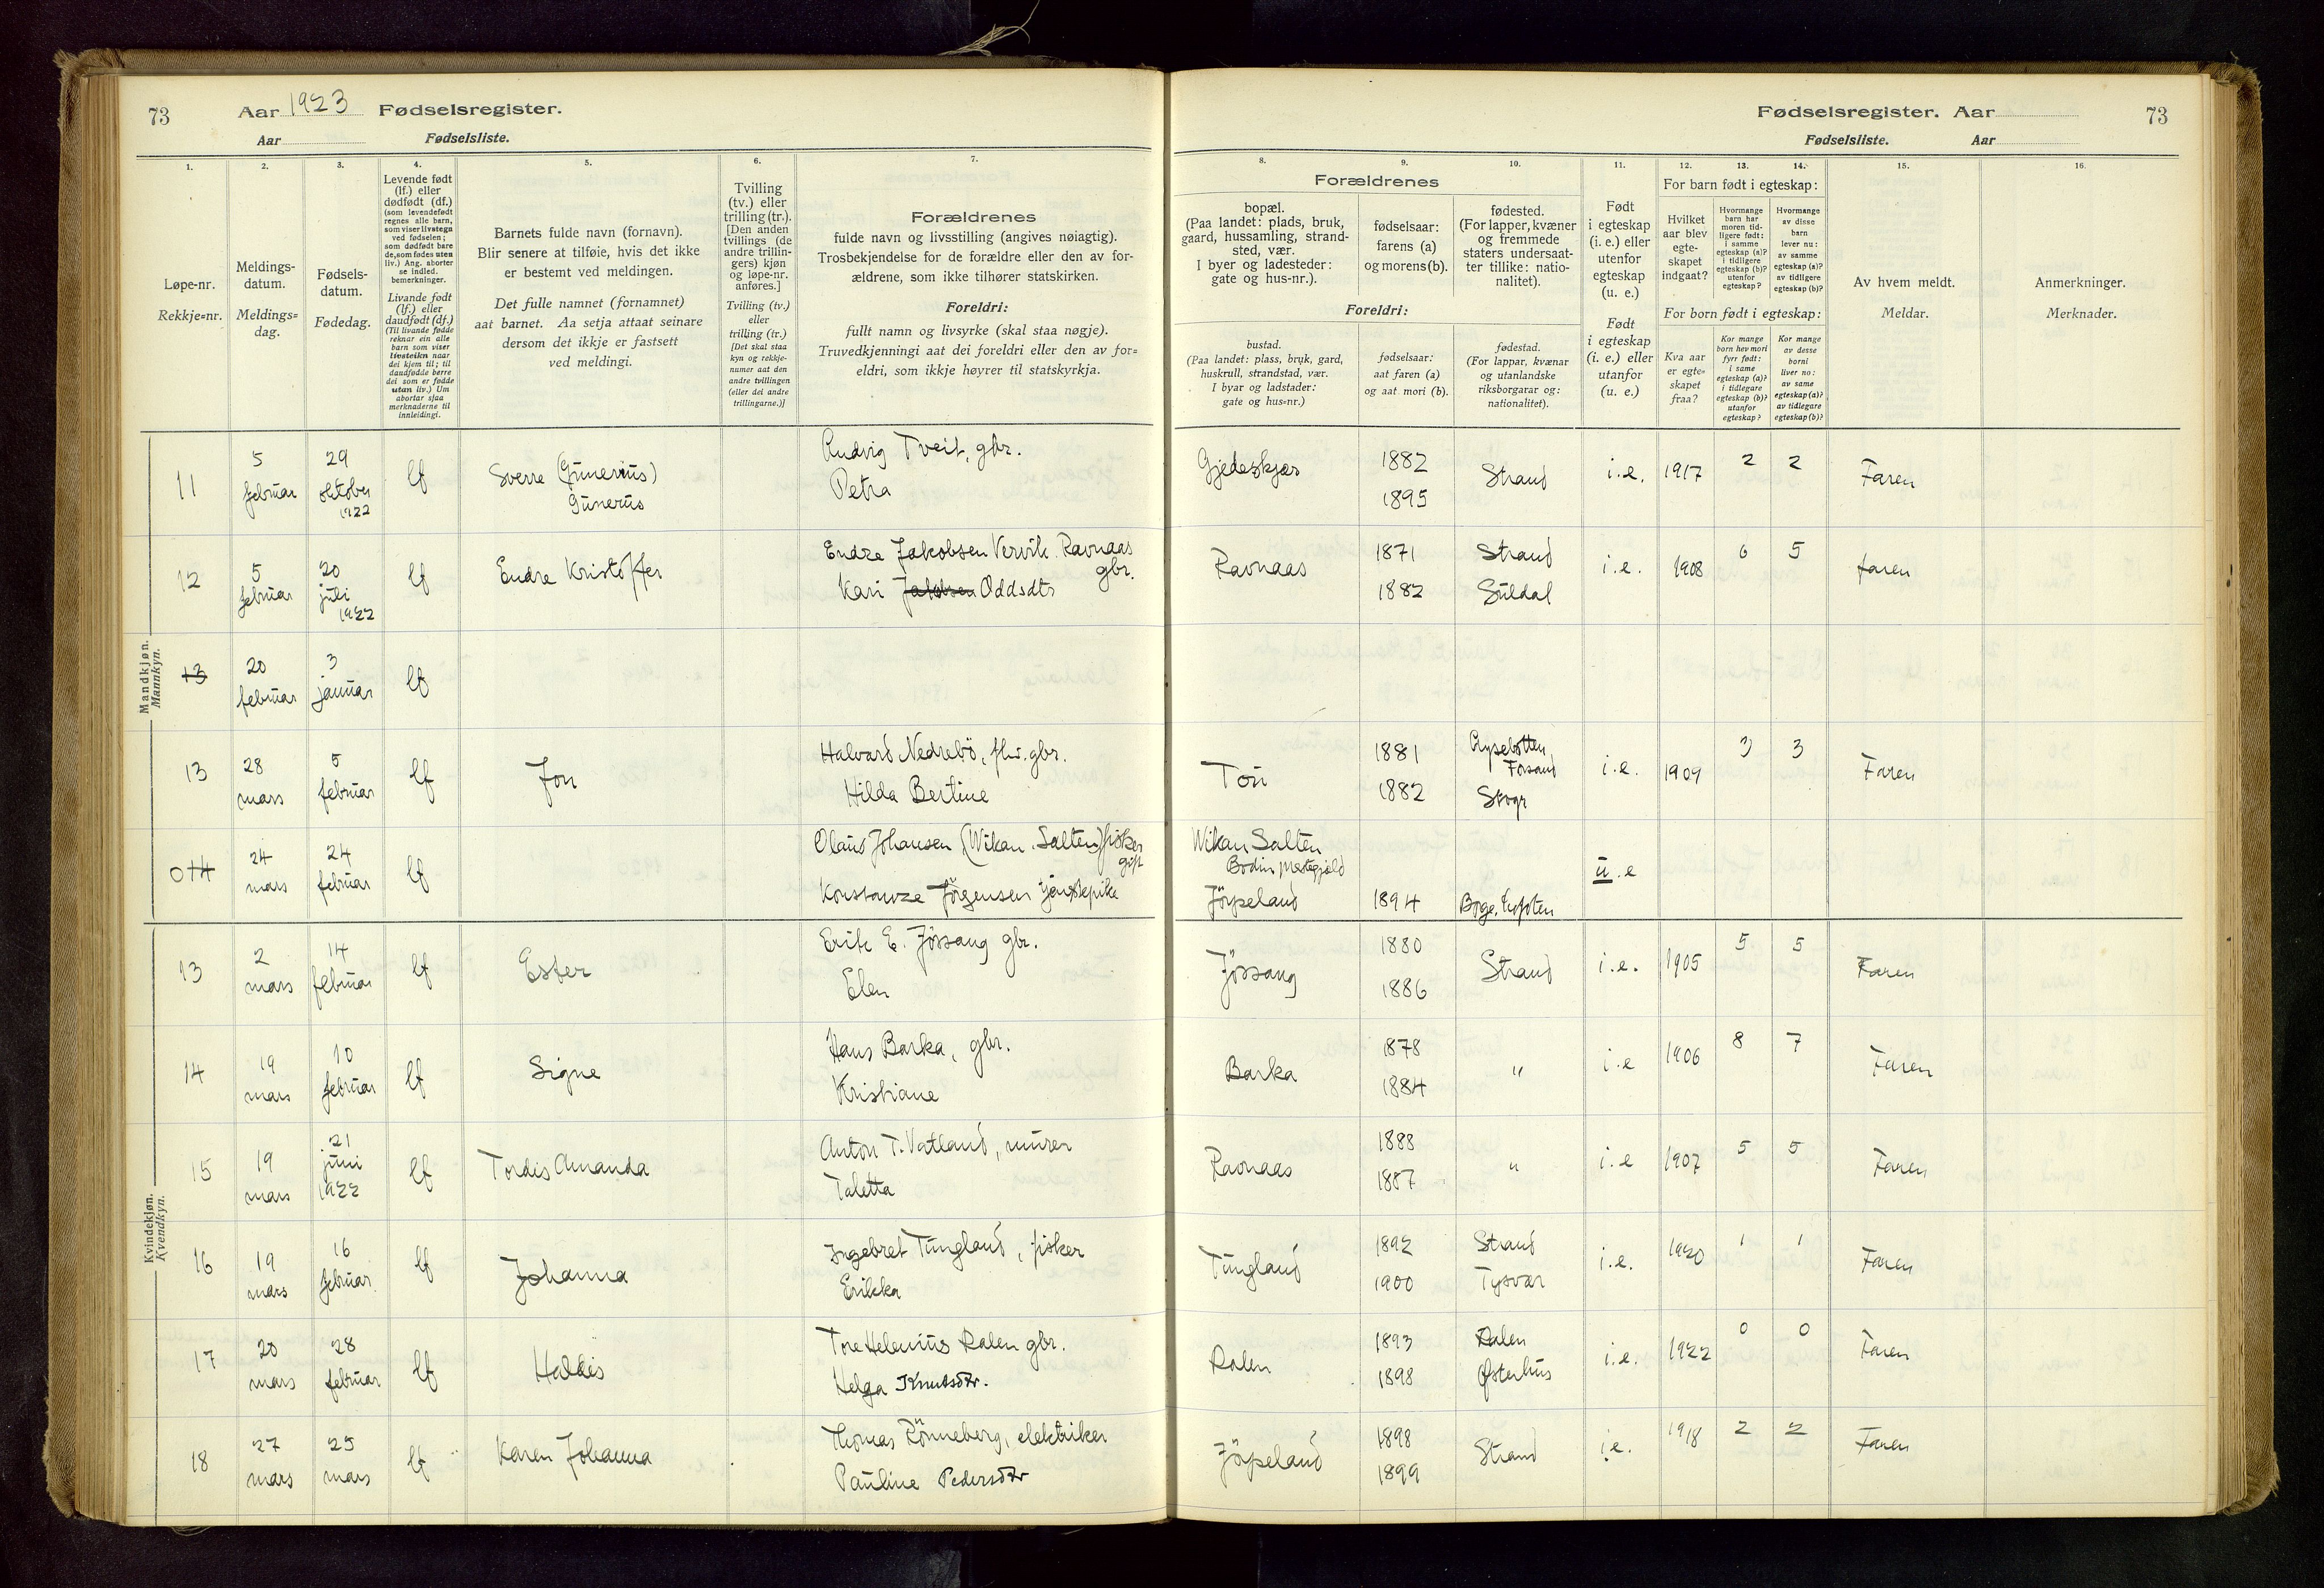 73 Aar 1923 Fødselsregister.
Aar Fødselsliste.
Fødselsregister. Aar 73
Fødselsliste. Aar
1. 2. 3. 4. 5. 6. 7.
Løpe-nr.
Rekkje=nr.
Meldings-
datum.
Meldings=
dag.
Fødsels-
datum.
Fødedag.
Levende født
(lf.) eller
dødfødt (df.)
(som levendefødt
regnes alle barn,
som viser livstegn
ved fødselen;
som dødfødt bare
de, som fødes uten
liv.) Ang. aborter
se indled.
bemerkninger.
Livande født
(lf.) eller
daudfødt (df.)
(Til livande fødde
reknar ein alle
barn som viser
livsteikn naar
dei kjem til; til
daudfødde berre
dei som er fødde
utan liv.) Um
abortar sjaa
merknaderne til
innleidingi.
Barnets fulde navn (fornavn).
Blir senere at tilføie, hvis det ikke
er bestemt ved meldingen.
Det fulle namnet (fornamnet)
aat barnet. Aa setja attaat seinare
dersom det ikkje er fastsett
ved meldingi.
Tvilling
(tv.) eller
trilling (tr.).
[Den anden
tvillings (de
andre trillin-
gers) kjøn
og løpe-nr.
anføres.]
Tvilling (tv.)
eller
trilling (tr.)
[Det skal staa
kyn og rekkje-
numer aat den
andre tvillingen
(eller dei andre
trillingarne.)]
Forældrenes
fulde navn og livsstilling (angives nøiagtig).
Trosbekjendelse for de forældre eller den av for-
ældrene, som ikke tilhører statskirken.
Foreldri:
fullt namn og livsyrke (skal staa nøgje).
Truvedkjenningi aat dei foreldri eller den av for=
eldri, som ikkje høyrer til statskyrkja.
8. 9. 10. 11. 12. 13. 14. 15. 16.
Forældrenes
bopæl.
(Paa landet: plads, bruk,
gaard, hussamling, strand-
sted, vær.
I byer og ladesteder:
gate og hus-nr.).
fødselsaar:
farens (a)
og morens (b).
fødested.
(For lapper, kvæner
og fremmede
staters undersaat-
ter tillike: natio-
nalitet).
Foreldri:
bustad.
(Paa landet: plass, bruk, gard,
huskrull, strandstad, vær.
I byar og ladstader:
gate og hus=nr.)
fødselsaar:
aat faren (a)
og aat mori (b).
fødestad.
(For lappar, kvænar
og utanlandske
riksborgarar og:
nationalitet).
Født
i egteskap
(i. e.) eller
utenfor
egteskap
(u. e.)
Født
i egteskap
(i. e.) eller
utanfor
(u. e.)
For barn født i egteskap:
Hvilket
aar blev
egte-
skapet
indgaat?
Hvormange
barn har
moren tid-
ligere født:
i samme
egteskap (a)?
i tidligere
egteskap (b)?
utenfor
egteskap?
Hvormange
av disse
barn
lever nu:
av samme
egteskap (a)?
av tidligere
egteskap (b)?
For born født i egteskap:
Kva aar
er egte=
skapet
fraa?
Kor mange
born hev mori
fyrr født:
i same
egteskap (a)?
i tidlegare
egteskap (b)?
utanfor
egteskap?
Kor mange
av desse
borni
liver no:
av same
egteskap (a)?
av tidlegare
egteskap (b)?
Av hvem meldt.
Meldar.
Anmerkninger.
Merknader.
Mandkjøn.
Mannkyn.
11 5 februar 29 oktober 1922 lf Sverre (Gunerius) Gunerus Ludvig Tveit, gbr. Petra Gjedeskjær 1882 1895 Strand i.e. 1917 2 2 Faren
12 5 februar 20 juli 1922 lf Endre Kristoffer Endre Jakobsen Vervik Ravnaas gbr. Kari Jakobsen Oddsdtr Ravnaas 1871 1882 Strand Suldal i.e. 1908 6 5 faren
13 20 februar 3 januar lf
13 28 mars 5 februar lf Jon Halvard Nedrebö, gbr. Hilda Bertine Tou 1881 1882 Lysebotten, Forsand Skogr i.e. 1909 3 3 Faren
014 24 mars 24 februar lf Olaus Johansen (Wikan, Salten) fisker gift Konstanze Jörgensen tjenstepike Wikan Salten Bodin prestegjeld Jörpeland 1894 Borge, Lofoten u.e
Kvindekjøn.
Kvendkyn.
13 2 mars 14 februar lf Ester Erik E. Jössang gbr. Elen Jössang 1880 1886 Strand i.e. 1905 5 5 Faren
14 19 mars 10 februar lf Signe Hans Barka, gbr. Kristiane Barka 1878 1884 " i.e 1906 8 7 Faren
15 19 mars 21 juni 1922 lf Tordis Amanda Anton T. Vatland, murer Taletta Ravnaas 1883 1887 " i.e 1907 5 5 Faren
16 19 mars 16 februar lf Johanna Ingebret Tungland, fisker Erikka Tungland 1892 1900 Strand Tysvær i.e. 1920 1 1 Faren
17 20 mars 28 februar lf Haldis Tore Helenius Dalen gbr. Helga Knutsdtr. Dalen 1893 1898 Dalen Østerhus i.e. 1922 0 0 Faren
18 27 mars 25 mars lf Karen Johanna Thomas Rönneberg, elektriker Pauline Pedersdtr Jörpeland 1898 1899 Strand i.e. 1918 2 2 Faren